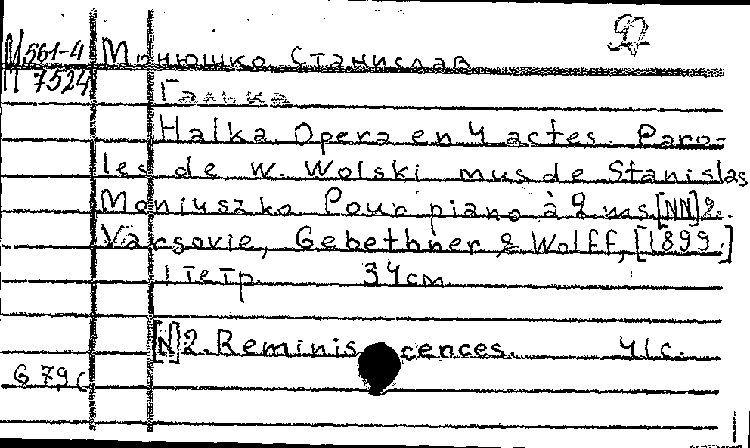 М 561-4
М 7524
Монюшко Станислав
Галька
Halka. Opera en 4 actes. Paro-
les de W. Wolski mus de Stanislas
Moniuszko Pour piano à 2 ms [NN] 2.
Varsovie, Gebethner & Wolff, [1899.]
1 тетр. 34 см
[N] 2. Reminiscences. 41 с.